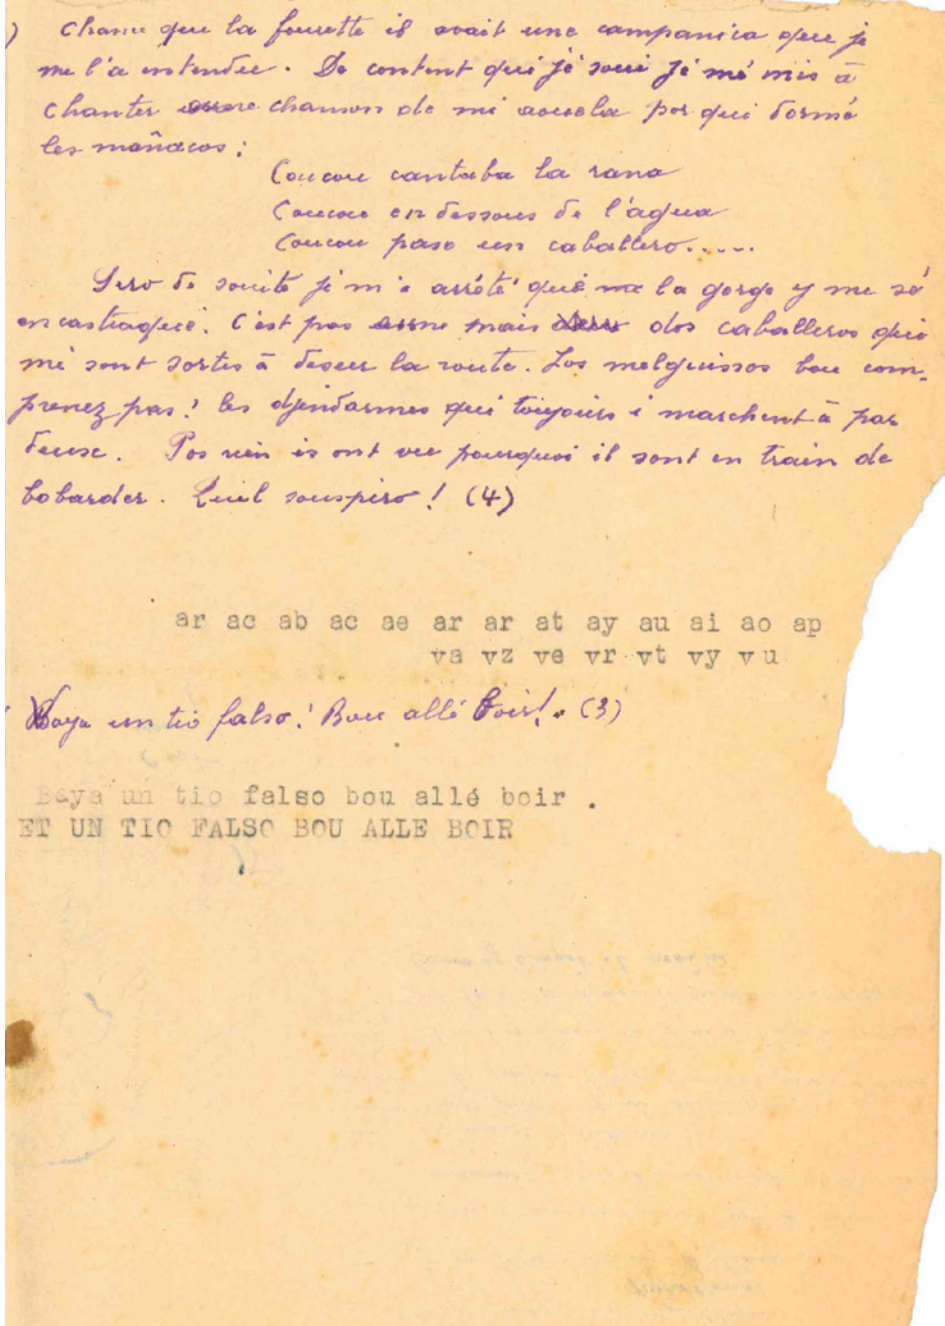 ) Chance que la fouette il avait une campanica que je
me l'a entendue. De content qui jé soui jé mé mis à
chanter chanson de mi aouela por qui dormé
les mañacos :
Coucou cantaba la rana
Coucou en dessous de l'agua
Coucou paso un caballero.....
Sero de souite je m'a arrêté qué la gorge y me sé
encastraqué. C'est pas mais dos caballeros qui
mé sont sortis à deseur la route. Los melguissos bou com-
prenez pas ! les djendarmes qui toujours i marchent à par
deuse. Pos rien is ont vu pourquoi il sont en train de
bobarder. Quel souspiro ! (4)
ar ac ab ac ae ar ar at ay au ai ao ap
va vz ve vr vt vy v u
Baya un tio falso ! Bou allé boir !. (3)
Baya un tio falso bou allé boir .
ET UN TIO FALSO BOU ALLE BOIR